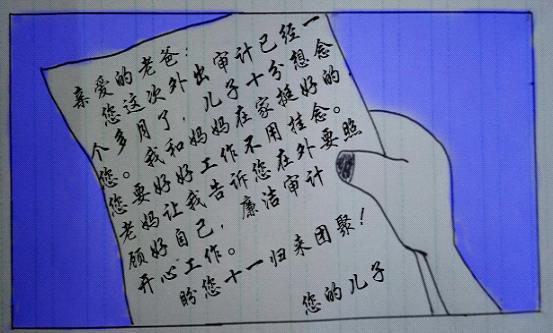 亲爱的老爸：
您这次外出审计已经一
个多月了，儿子十分想念
您。我和妈妈在家挺好的
您要好好工作不用挂念。
老妈让我告诉您在外要照
顾好自己，廉洁审计
开心工作。
盼您十一归来团聚！
您的儿子